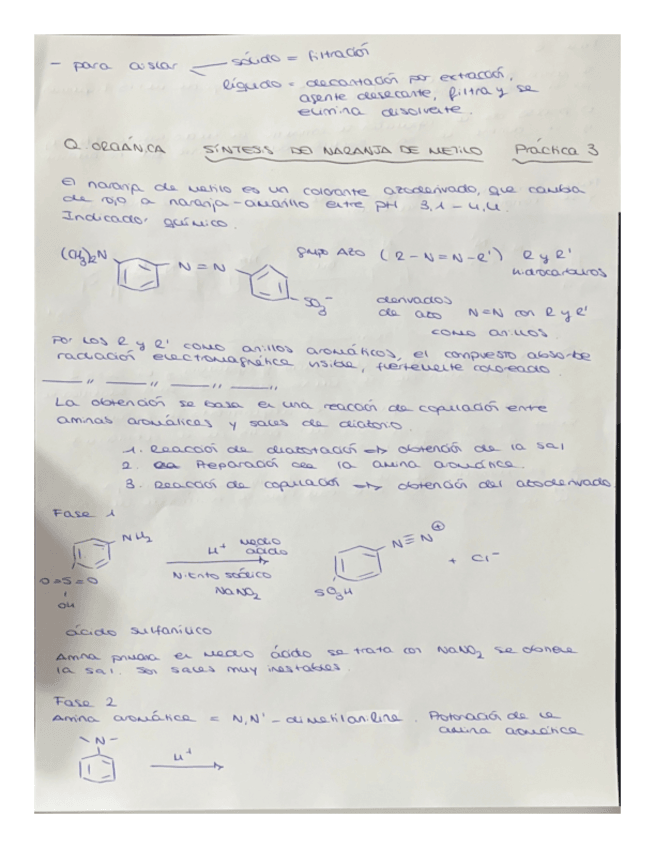 - para aislar
sólido = filtración
líquido = decantación por extracción,
agente desecante, filtra y se
elimina disolvente.
Q. ORGÁNICA SÍNTESIS DE NARANJA DE METILO Práctica 3
El naranja de metilo es un colorante azoderivado, que cambia
de rojo a naranja-amarillo entre pH 3,1 - 4,4.
Indicador químico.
(CH3)2N N=N SO3-
grupo AZO (R-N=N-R') R y R'
hidrocarburos
derivados
de azo N=N con R y R'
como anillos.
Por los R y R' como anillos aromáticos, el compuesto absorbe
radiación electromagnética visible, fuertemente coloreado.
____ " ____ " ____ " ____ "
La obtención se basa en una reacción de copulación entre
aminas aromáticas y sales de diazonio.
1. Reacción de diazotación => obtención de la sal
2. Preparación de la amina aromática.
3. Reacción de copulación => obtención del azoderivado
Fase 1
NH2
O=S=O
OH
H+ medio
ácido
Nitrito sódico
NaNO2
N≡N ⊕
SO3H
+ Cl-
ácido sulfanílico
Amina primaria en medio ácido se trata con NaNO2 se obtiene
la sal. Son sales muy inestables.
Fase 2
Amina aromática = N,N'-dimetilanilina. Protonación de la
amina aromática
-N-
H+